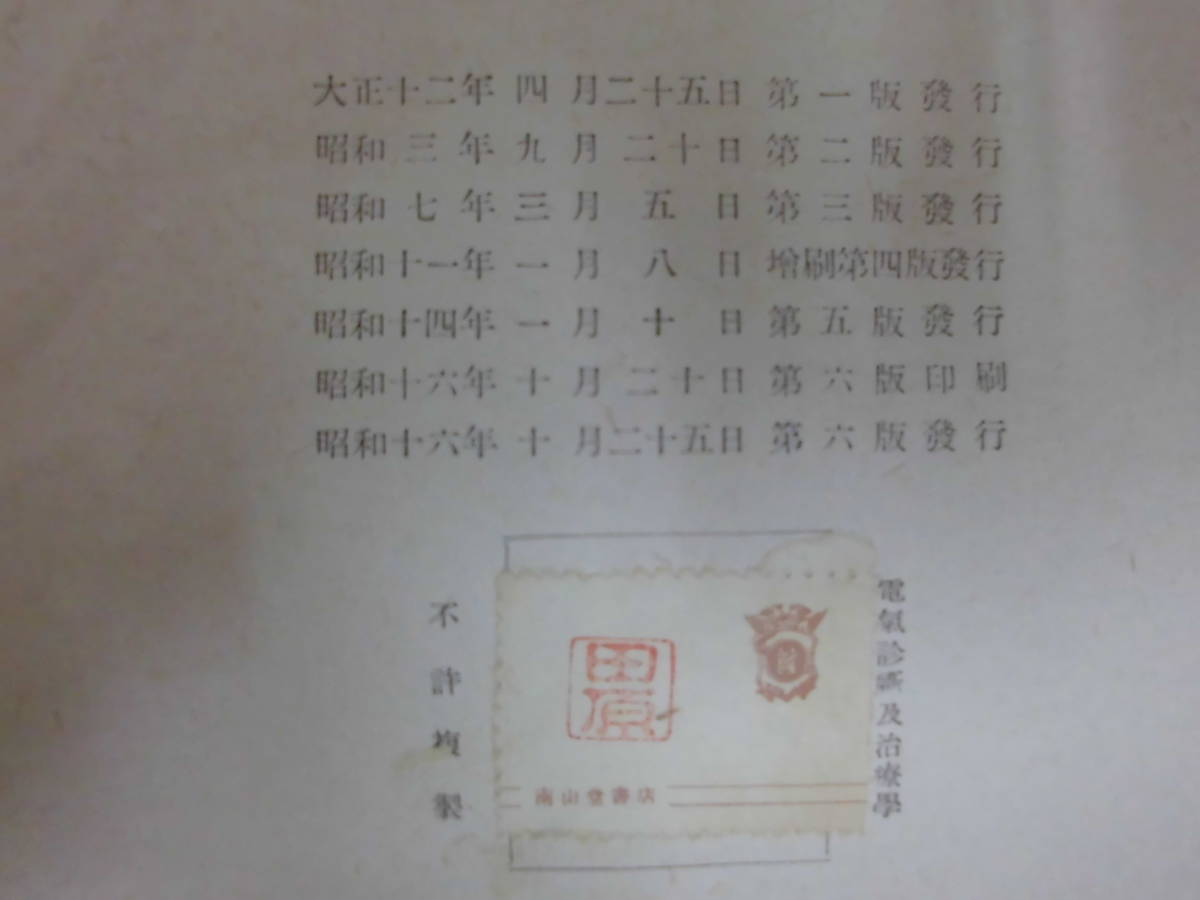 大正十二年四月二十五日第一版發行
昭和三年九月二十日第二版發行
昭和七年三月五日第三版發行
昭和十一年一月八日增刷第四版發行
昭和十四年一月十日第五版發行
昭和十六年十月二十日第六版印刷
昭和十六年十月二十五日第六版發行
電氣診斷及治療學
田原
南山堂書店
不許複製